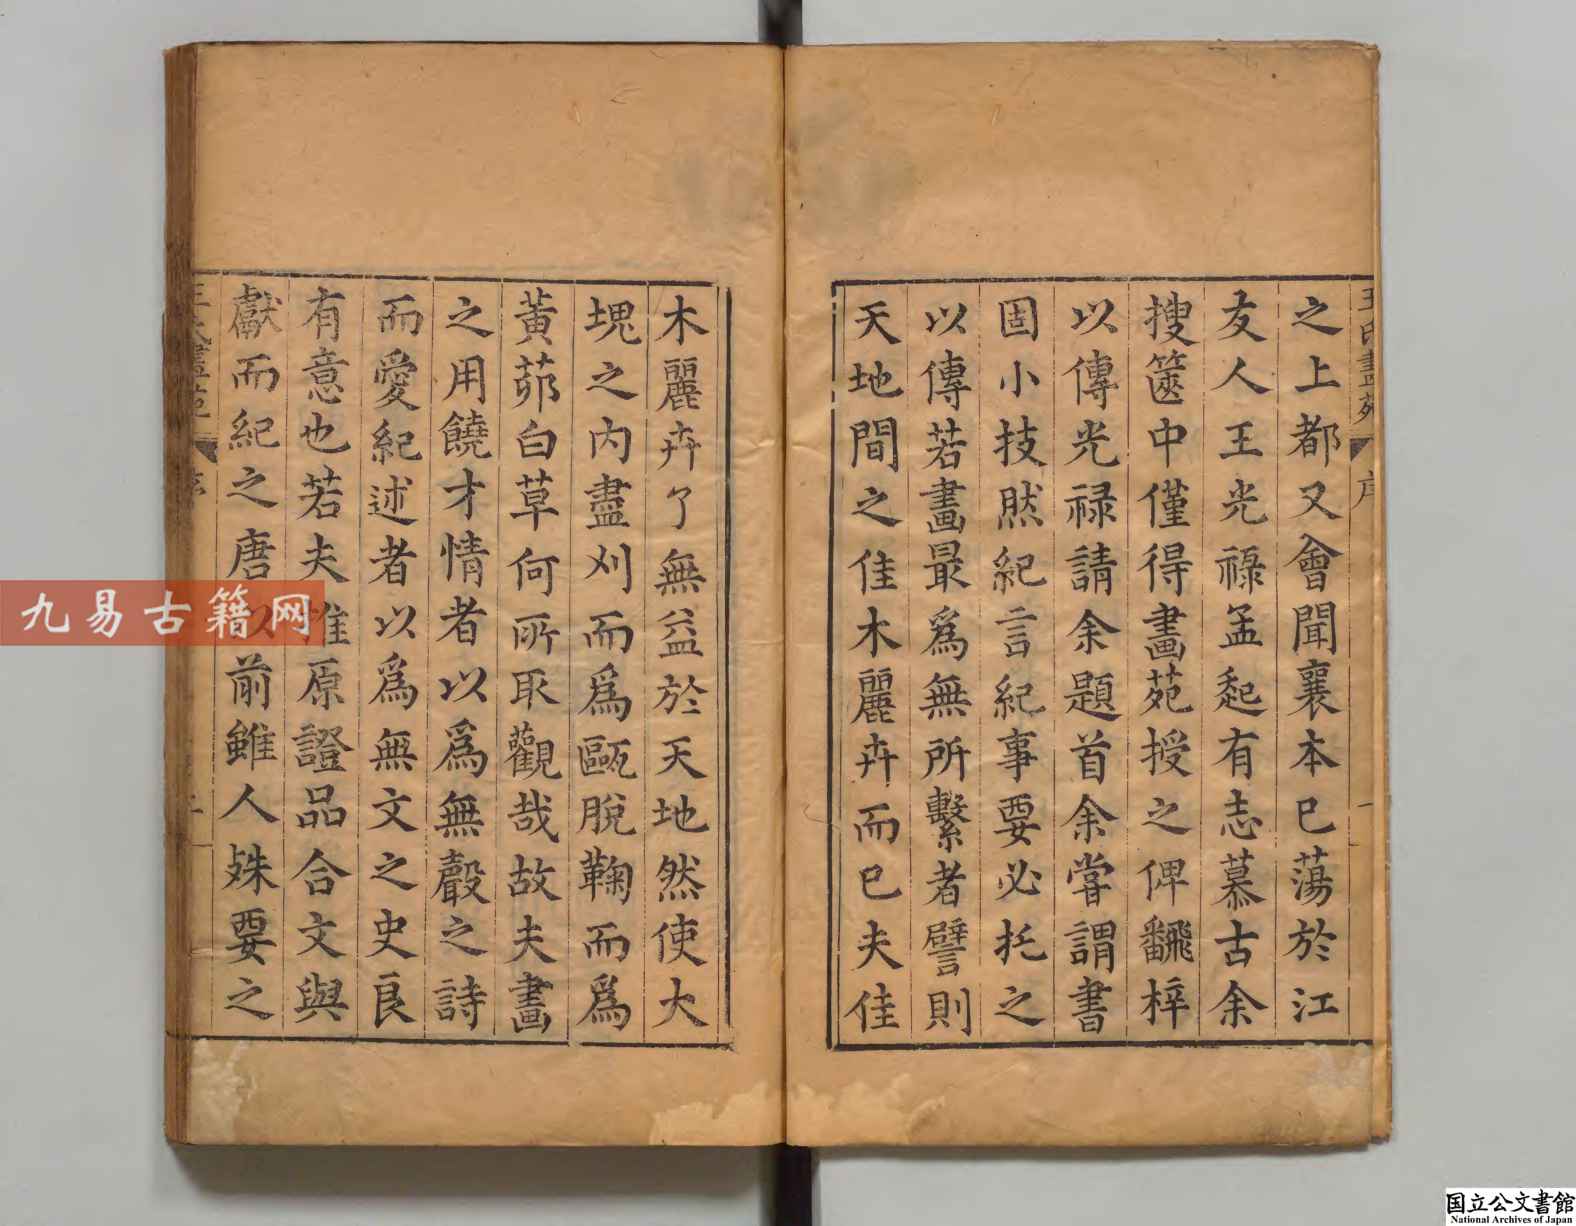 王氏畫苑
序
一
之上都又會聞襄本已蕩於江
友人王光祿孟起有志慕古余
搜篋中僅得畫苑授之俾飜梓
以傳光禄請余題首余嘗謂書
固小技然紀言紀事要必托之
以傳若畫最爲無所繫者譬則
天地間之佳木麗卉而已夫佳
木麗卉了無益於天地然使大
塊之内盡刈而爲甌脫鞠而爲
黃茆白草何所取觀哉故夫畫
之用饒才情者以爲無聲之詩
而愛紀述者以爲無文之史良
有意也若夫推原證品合文與
獻而紀之唐以前雖人殊要之
王氏畫苑
序
二
九易古籍网
国立公文書館
National Archives of Japan